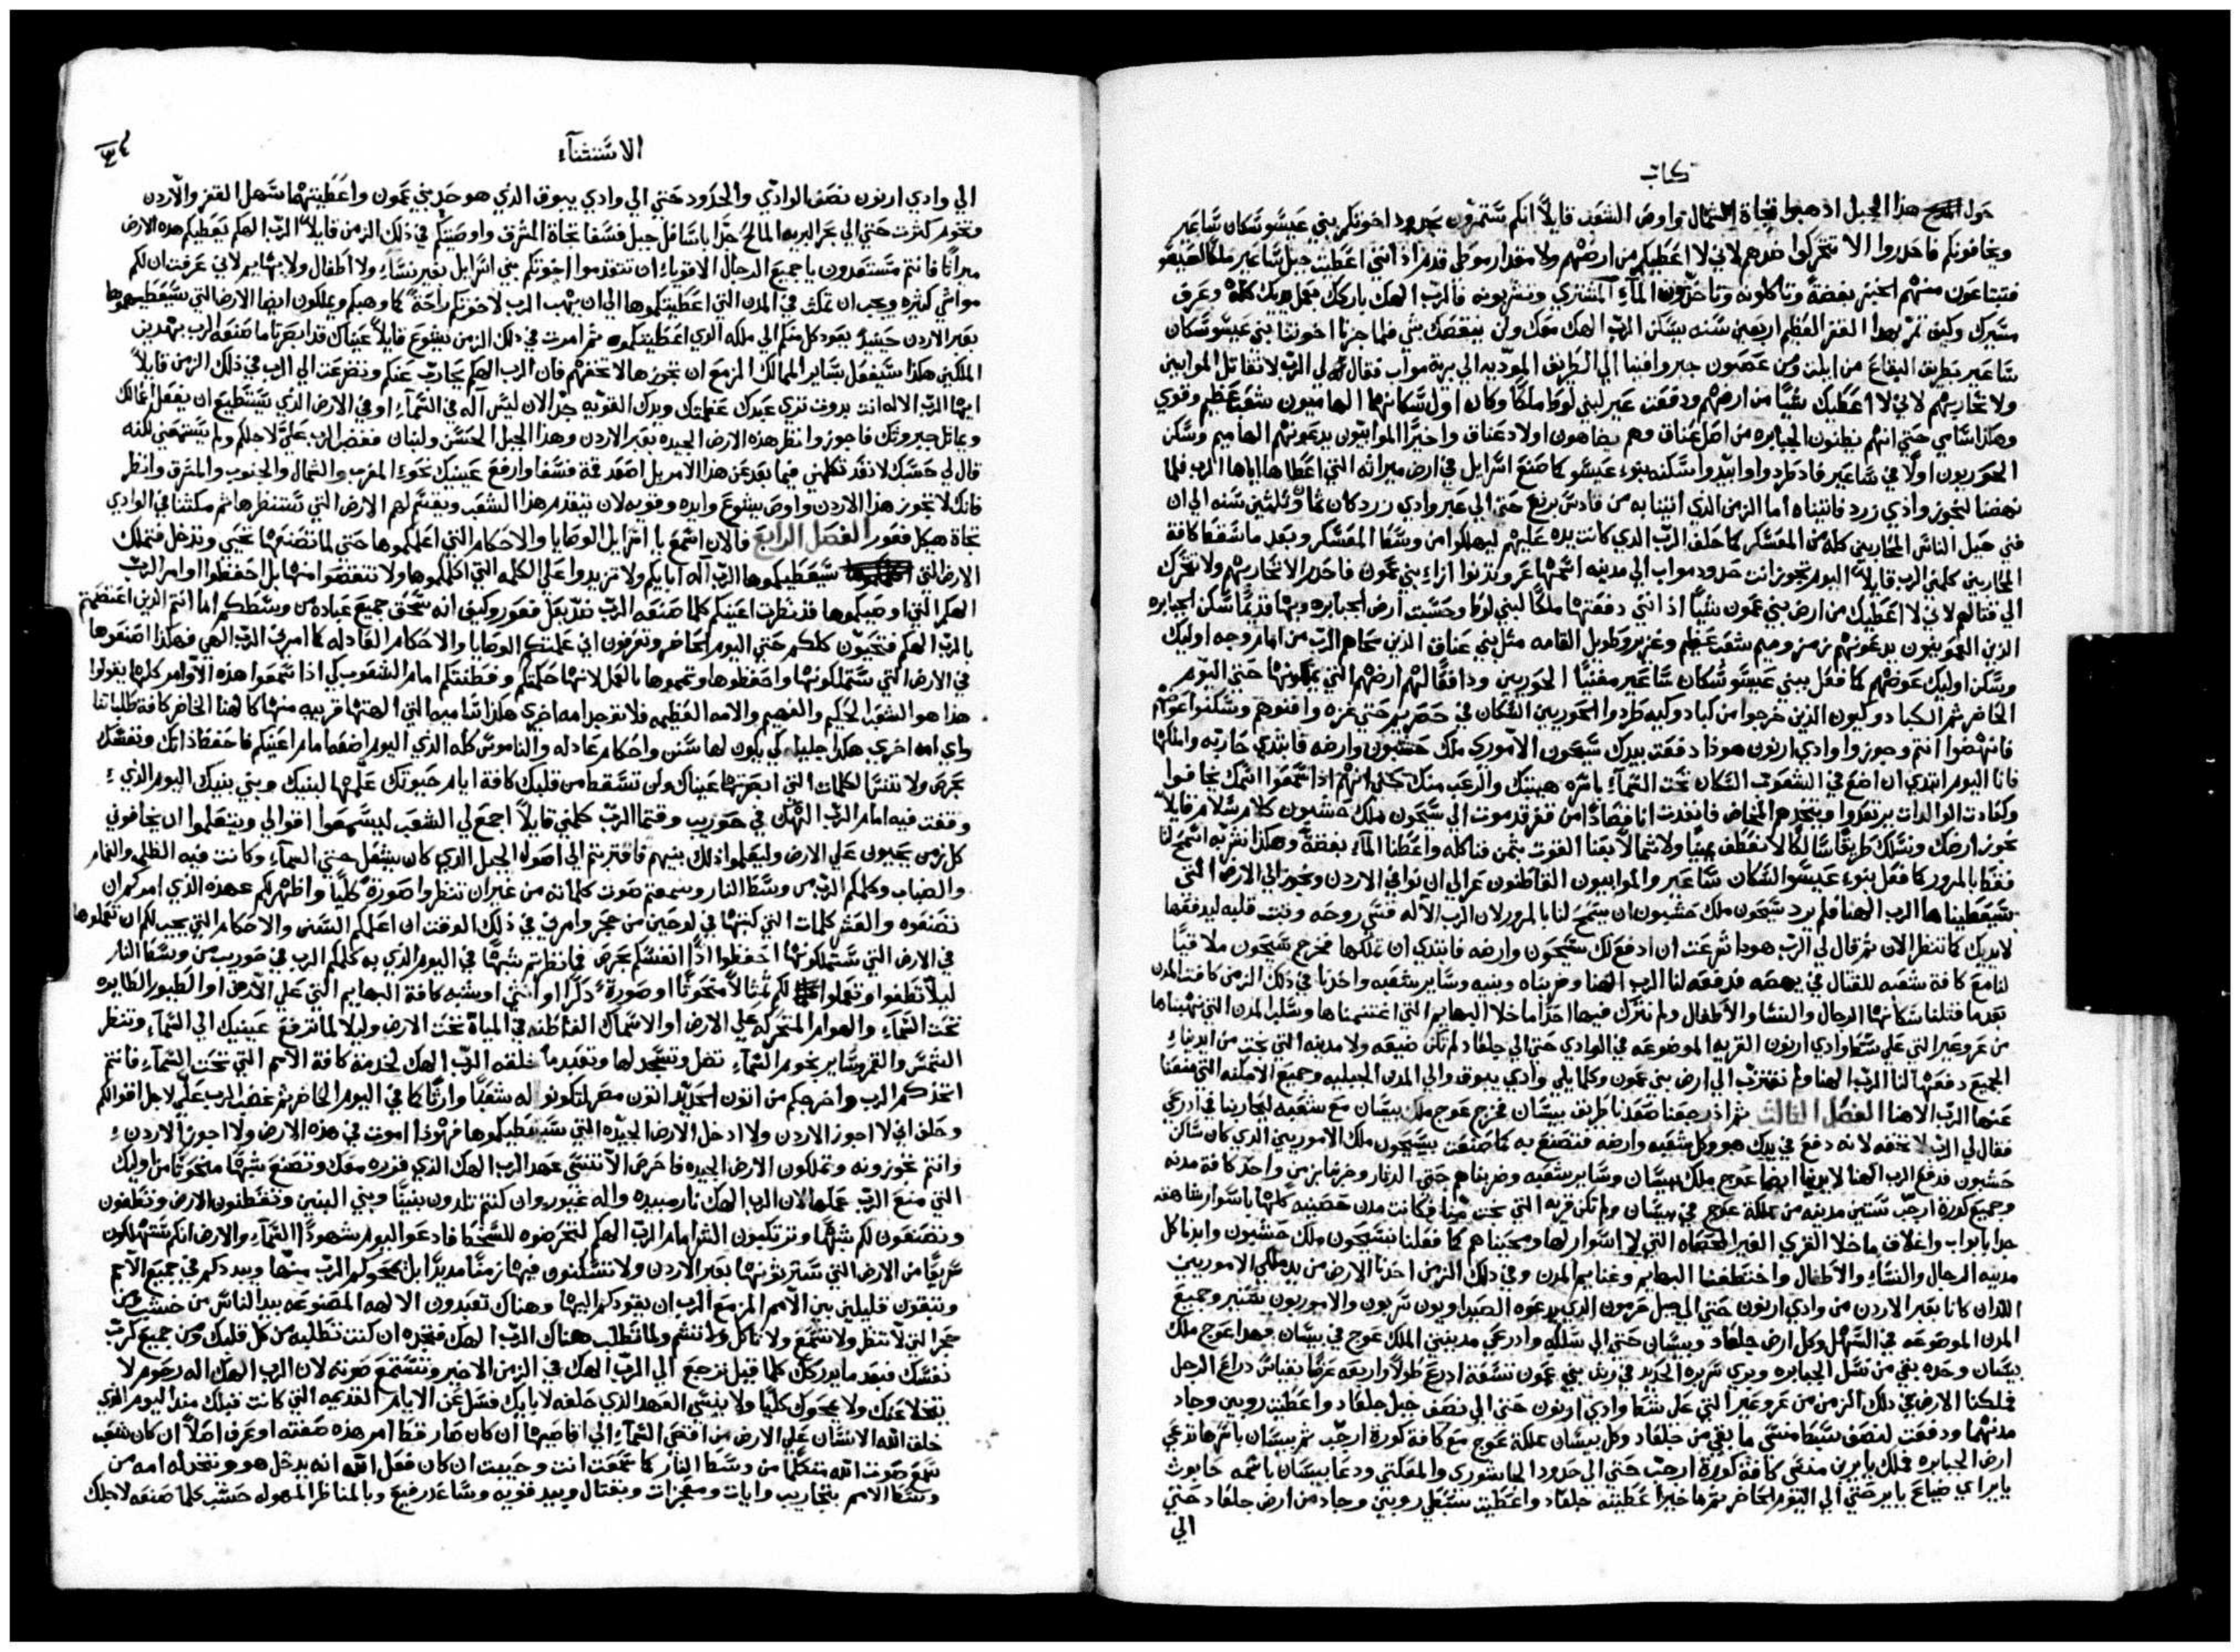 كتاب
حول هذا الجبل اذهبوا تجاة الشمال واوص الشعب قايلاً انكم ستمرون بحدود اخوتكم بني عيسو سكان ساعير
ويخافونكم فاحدروا الا تتحركوا ضدهم لاني لا اعطيكم من ارضهم ولا مقدار موطى قدم اذ انني اعطيت جبل ساعير ملكاً لعيسو
فتبتاعون منهم الخبز بفضة وتاكلونه وتاخدون المآء المشتري وتشربونه فالرب الهك باركك بعمل يديك كله وعرف
مسيرك وكيف تمر بهذا القفر العظيم اربعين سنه يسكن الرب الهك معك ولن ينقصك شي فلما جزنا اخوتنا بني عيسو سكان
ساعير بطريق البقاع من ايلت ومن عصيون جبر وافينا الي الطريق الموديه الي برية مواب فقال لي الرب لا تقاتل الموابيين
ولا تحاربهم لاني لا اعطيك شياً من ارضهم ودفعت عير لبني لوط ملكاً وكان اول سكانها الهاميون شعب عظيم وقوي
وهكذا سامي حتي انهم يظنون الجبابره من اصل عناق وهم يضاهون اولاد عناق واخيراً الموابيون يدعونهم الهاميم وسكن
الحوريون اولاً في ساعير فاد طردوا وابيدوا سكنه بنوء عيسو كما صنع اسرايل في ارض ميراثه التي اعطاها اياها الرب فلما
نهضنا لنجوز وادي زرد فاتيناه اما الزمن الذي اتينا به من قادس برنع حتي الي عبر وادي زرد كان ثماً وثلثين سنه الي ان
فني جيل الناس المحاربين كله من المعسكر كما حلف الرب الدي كانت يده عليهم ليهلكوا من وسط المعسكر وبعد ما سقط كافة
المحاربين كلمني الرب قايلاً اليوم تجوز انت حدود مواب الي مدينه اسمها عر وتدنوا ازاء بني عمون فاحدر الا تحاربهم ولا تتحرك
الي قتالهم لاني لا اعطيك من ارض بني عمون شياً اذ انني دفعتها ملكاً لبني لوط وحسبت ارض الجبابره وبها قديماً سكن الجبابره
الذين العمونيون يدعونهم زمزوميم شعب عظيم وغزير وطويل القامه مثل بني عناق الذين محاهم الرب من امام وجه اوليك
وسكن اوليك عوضهم كما فعل ببني عيسو سكان ساعير مفنياً الحوريين ودافعاً لهم ارضهم التي يملكونها حتي اليوم
الحاضر ثم الكبادوكيون الذين خرجوا من كبادوكيه طردوا الحوريين السكان في حصريم حتي غزه وافنوهم وسكنوا عوضهم
فانهضوا انتم وجوزوا وادي ارنون هوذا دفعت بيدك سيحون الاموري ملك حشبون وارضه فابتدي حاربه واملكها
فانا اليوم ابتدي ان اضع في الشعوب السكان تحت السمآء باسره هيبتك والرعب منك حتي انهم اذا سمعوا اسمك يخافوا
وكعادت الوالدات يرتعدوا وياخدهم المخاض فانفدت انا قصاداً من قفر قدموت الي سيحون ملك حشبون كلام سلام قايلاً
نجوز ارضك ونسلك طريقاً سالكاً لا نعطف يميناً ولا شمالاً بعنا القوت بثمن فناكله واعطنا المآء بفضة وهكذا نشربه اسمح لنا
فقط بالمرور كما فعل بنوء عيسو السكان ساعير والموابيون القاطنون عر الي ان نوافي الاردن ونجوز الي الارض التي
سيعطيناها الرب الهنا فلم يرد سيحون ملك حشبون ان يسمح لنا بالمرور لان الرب الاله قسي روحه وثبت قلبه ليدفعها
لايديك كما تنظر الان ثم قال لي الرب هودا شرعت ان ادفع لك سيحون وارضه فابتدي ان تملكها فخرج سيحون ملاقياً
لنا مع كافة شعبه للقتال في يهصه فدفعه لنا الرب الهنا وضربناه وبنيه وساير شعبه واخدنا في ذلك الزمن كافت المدن
بعد ما قتلنا سكانها الرجال والنسا والاطفال ولم نترك فيها احداً ما خلا البهايم التي اغتنمناها وسلب المدن التي نهبناها
من عروعير التي علي شط وادي ارنون القريه الموضوعه في الوادي حتي الي جلعاد لم تكن ضيعه ولا مدينه التي نجت من ايديناء
الجميع دفعها لنا الرب الهنا ولم نقترب الي ارض بني عمون وكلما يلي وادي يبوق والي المدن الجبليه وجميع الامكنه التي منعنا
عنها الرب الاهنا الفصل الثالث ثم اذ رجعنا صعدنا بطريق بيسان فخرج عوج ملك بيسان مع شعبه ليحاربنا في ادرعي
فقال لي الرب لا تخفه لانه دفع في يدك هو وكل شعبه وارضه فتصنع به كما صنعت بسيحون ملك الاموريين الذي كان ساكن
حشبون فدفع الرب الهنا لايدينا ايضاً عوج ملك بيسان وساير شعبه وضربناهم حتي الدثار وخربنا بزمن واحد كافة مدنه
وجميع كورة ارجب ستين مدينه من مملكة عوج في بيسان ولم تكن قريه التي نجت منا فكانت مدن حصينه كلها باسوار شاهقه
جدا بابواب واغلاق ما خلا القري الغير المحصاه التي لا اسوار لها ومحيناهم كما فعلنا بسيحون ملك حشبون وابدنا كل
مدينه الرجال والنساء والاطفال واختطفنا البهايم وغنايم المدن وفي دلك الزمن اخدنا الارض من يد ملكي الاموريين
اللذان كانا بعبر الاردن من وادي ارنون حتي الي جبل حرمون الدي يدعوه الصيداويون سريون والاموريون سنير وجميع
المدن الموضوعه في السهل وكل ارض جلعاد وبيسان حتي الي سلكه وادرعي مدينتي الملك عوج في بيسان فهدا عوج ملك
بيسان وحده بقي من نسل الجبابره ويري سريره الحديد في ربث بني عمون تسعة ادرع طولاً واربعة عرضاً بقياس دراع الرجل
فملكنا الارض في دلك الزمن من عروعير التي علي شط وادي ارنون حتي الي نصف جبل جلعاد واعطيت روبين وجاد
مدنهما ودفعت لنصف سبط منسي ما بقي من جلعاد وكل بيسان مملكة عوج مع كافة كورة ارجب ثم بيسان باسرها تدعي
ارض الجبابره فملك يابير بن منسي كافة كورة ارجب حتي الي حدود الجاشوري والمعكتي ودعا بيسان باسمه حابوث
يابير اي ضياع يابير حتي الي اليوم الحاضر ثم ماخير اعطيته جلعاد واعطيت سبطي روبين وجاد من ارض جلعاد حتي
الي
الاستثنآء
الي وادي ارنون نصف الوادي والحدود حتي الي وادي يبوق الذي هو حد بني عمون واعطيتهما سهل القفر والاردن
وتخوم كنرت حتي الي بحر البريه المالح جداً باسافل جبل فسغا تجاة المشرق واوصيتكم في ذلك الزمن قايلاً الرب الهكم يعطيكم هده الارض
ميراثاً فانتم مستعدون يا جميع الرجال الاقوياء ان تتقدموا اخوتكم بني اسرايل بغير نساء ولا اطفال ولا بهايم لاني عرفت ان لكم
مواشي كثيره ويجب ان تمكث في المدن التي اعطيتكموها الي ان يهب الرب لاخوتكم راحةً كما وهبكم ويملكون ايضا الارض التي سيعطيهموها
بعبر الاردن حينيدٍ يعود كل منكم الي ملكه الدي اعطيتكموه ثم امرت في دلك الزمن يشوع قايلاً عيناك قد ابصرتا ما صنعه الرب بهدين
الملكين هكذا سيفعل بساير الممالك المزمع ان تجوزها لا تخفهم فان الرب الهكم يحارب عنكم وتضرعت الي الرب في ذلك الزمن قايلاً
ايها الرب الاله انت بدوت تري عبدك عظمتك ويدك القويه جداً لان ليس اله في السمآء او في الارض الذي يستطيع ان يفعل افعالك
ويماثل جبروتك فاجوز وانظر هذه الارض الجيده بعبر الاردن وهذا الجبل الحسن ولبنان فغضب الرب علي لاجلكم ولم يستمعني لكنه
قال لي حسبك لا تعد تكلمني فيما بعد عن هذا الامر بل اصعد قمة فسغا وارفع عينيك نحوء المغرب والشمال والجنوب والمشرق وانظر
فانك لا تجوز هذا الاردن واوص يشوع وايده وقويه لان يتقدم هذا الشعب ويقسم لهم الارض التي ستنظرها ثم مكثنا في الوادي
تجاة هيكل فغور الفصل الرابع فالان اسمع يا اسرايل الوصايا والاحكام التي اعلمكموها حتي لما تصنعها تحيي وتدخل فتملك
الارض التي سيعطيكموها الرب اله ابايكم ولا تزيدوا علي الكلمه التي اكلمكموها ولا تنقصوا منها بل احفظوا اوامر الرب
الهكم التي اوصيكموها قد نظرت اعينكم كلما صنعه الرب ضد بعل فغور وكيف انه سحق جميع عباده من وسطكم اما انتم الذين اعتصمتم
بالرب الهكم فتحيون كلكم حتي اليوم الحاضر وتعرفون اني علمتكم الوصايا والاحكام العادله كما امرني الرب الهي فهكذا اصنعوها
في الارض التي ستملكونها واحفظوها وتمموها بالعمل لانها حكمتكم وفطنتكم امام الشعوب كي اذا سمعوا هذه الاوامر كلها يقولوا
هذا هو الشعب الحكيم والفهيم والامه العظيمه فلا توجد امه اخري هكذا ساميه التي الهتها قريبه منها كالهنا الحاضر كافة طلباتنا
واي امه اخري هكذا جليله كي يكون لها سنن واحكام عادله والناموس كله الذي اليوم اضعه امام اعينكم فاحفظ ذاتك ونفسك
بحرص ولا تنسا الكلمات التي ابصرتها عيناك ولن تسقط من قلبك كافة ايام حيوتك علمها لبنيك وبني بنيك اليوم الذيء
وقفت فيه امام الرب الهك في حوريب وقتما الرب كلمني قايلاً اجمع لي الشعب ليسمعوا اقوالي ويتعلموا ان يخافوني
كل زمن يحيون علي الارض وليعلموا ذلك بنيهم فاقتربتم الي اصول الجبل الدي كان يشعل حتي السمآء وكانت فيه الظلمه والغمام
والضباب وكلمكم الرب من وسط النار وسمعتم صوت كلماته من غير ان تنظروا صورةً كلياً واظهر لكم عهده الذي امركم ان
تصنعوه والعشر كلمات التي كتبها في لوحين من حجر وامرني في ذلك الوقت ان اعلمكم السنن والاحكام التي يجب لكم ان تعملوها
في الارض التي ستملكونها احفظوا اذاً انفسكم بحرص فما نظرتم شبهاً في اليوم الذي به كلمكم الرب في حوريب من وسط النار
ليلاّ تطغوا وتعملوا لكم تمثالاً منحوتاً او صورةً دكراً او انثي او شبه كافة البهايم التي علي الارض او الطيور الطايره
تحت السمآء والهوام المتحركه علي الارض او الاسماك القاطنه في المياة تحت الارض وليلا لما ترفع عينيك الي السمآء وتنظر
الشمس والقمر وساير نجوم السمآء تضل وتسجد لها وتعبد ما خلقه الرب الهك لخدمة كافة الامم التي تحت السمآء فانتم
اتخدكم الرب واخرجكم من اتون الحديد اتون مصر لتكونوا له شعباً وارثاً كما في اليوم الحاضر ثم غضب الرب علي لاجل اقوالكم
وحلف اني لا اجوز الاردن ولا ادخل الارض الجيده التي سيعطيكموها فهوذا اموت في هذه الارض ولا اجوز الاردن
وانتم تجوزونه وتملكون الارض الجيده فاحرص الا تنسي عهد الرب الهك الذي قرره معك وتصنع شبهاً منحوتاً من اوليك
التي منع الرب عملها لان الرب الهك نار مبيده واله غيور وان كنتم تلدون بنيناً وبني البنين وتقطنون الارض وتطغون
وتصنعون لكم شبهاً وترتكبون الشر امام الرب الهكم لتحرضوه للسخط فادعو اليوم شهوداً السمآء والارض انكم ستهلكون
سريعاً من الارض التي سترثونها بعبر الاردن ولا تسكنون فيها زمناً مديداً بل يمحوكم الرب منها ويبددكم في جميع الامم
وتبقون قليلين بين الامم المزمع الرب ان يقودكم اليها وهناك تعبدون الالهه المصنوعه بيد الناس من خشب ومن
حجر التي لا تنظر ولا تسمع ولا تاكل ولا تنشم ولما تطلب هناك الرب الهك فتجده ان كنت تطلبه من كل قلبك ومن جميع كرب
نفسك فبعد ما يدركك كلما قيل ترجع الي الرب الهك في الزمن الاخير وتستمع صوته لان الرب الهك اله رحوم لا
يتخلا عنك ولا يمحوك كلياً ولا ينسي العهد الذي حلفه لابايك فسل عن الايام القديمه التي كانت قبلك مند اليوم الذي
خلق الله الانسان علي الارض من اقصي السمآء الي اقاصيها ان كان صار قط امر هذه صفته او عرف اصلاً ان كان شعب
سمع صوت الله متكلماً من وسط النار كما سمعت انت وحييت ان كان فعل الله انه يدخل هو ويتخد له امه من
وسط الامم بتجاريب وايات ومعجزات وبقتال وبيد قويه وساعد رفيع وبالمناظر المهوله حسب كلما صنعه لاجلك